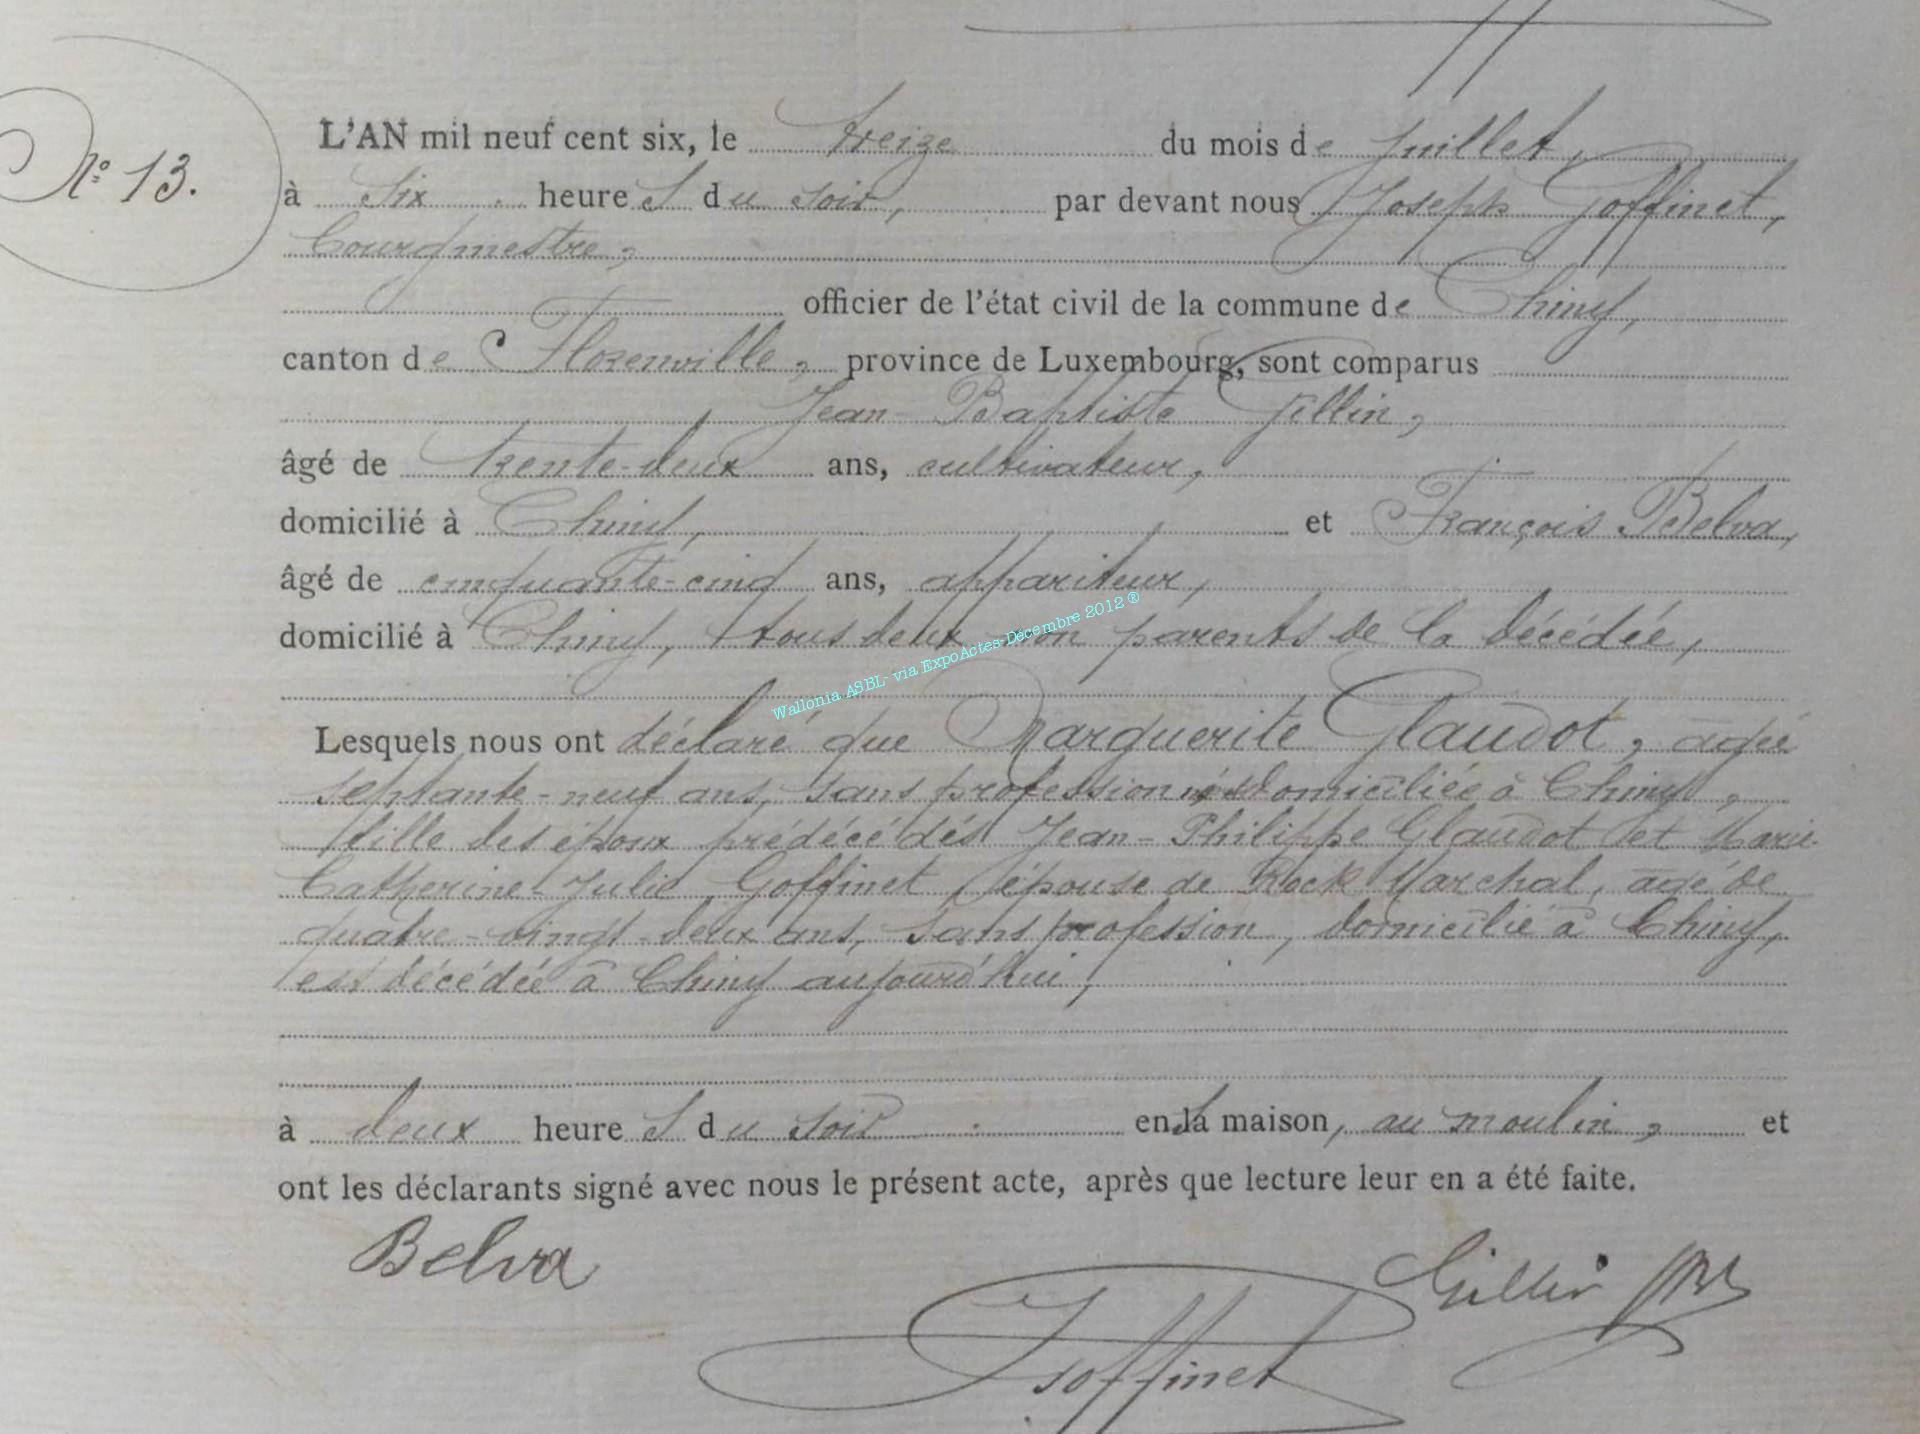 N° 13.
L'AN mil neuf cent six, le treize du mois de juillet,
à six heures du soir, par devant nous Joseph Goffinet,
bourgmestre,
officier de l'état civil de la commune de Chiny,
canton de Florenville, province de Luxembourg, sont comparus
Jean-Baptiste Gillin,
âgé de trente-deux ans, cultivateur,
domicilié à Chiny, et François Belva,
âgé de cinquante-cinq ans, appariteur,
domicilié à Chiny, tous deux non parents de la décédée,
Wallonia ASBL- via ExpoActes-Décembre 2012 ®
Lesquels nous ont déclaré que Marguerite Glaudot, agée
septante-neuf ans, sans profession domiciliée à Chiny,
fille des époux prédécédés Jean-Philippe Glaudot et Marie-
Catherine-Julie Goffinet, épouse de Rock Marchal, agé de
quatre-vingt-deux ans, sans profession, domicilié à Chiny,
est décédée à Chiny aujourd'hui,
à deux heures du soir en sa maison, au moulin, et
ont les déclarants signé avec nous le présent acte, après que lecture leur en a été faite.
Belva
Gillin JB
JGoffinet